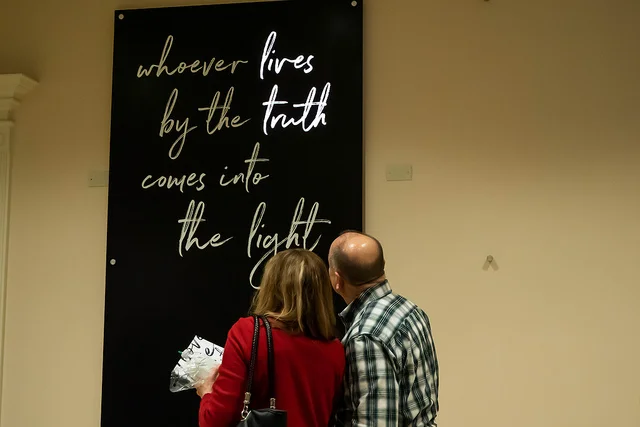 whoever lives
by the truth
comes into
the light